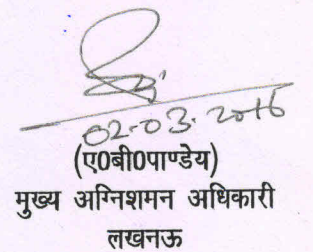 02-03-2016
(ए0बी0पाण्डेय)
मुख्य अग्निशमन अधिकारी
लखनऊ